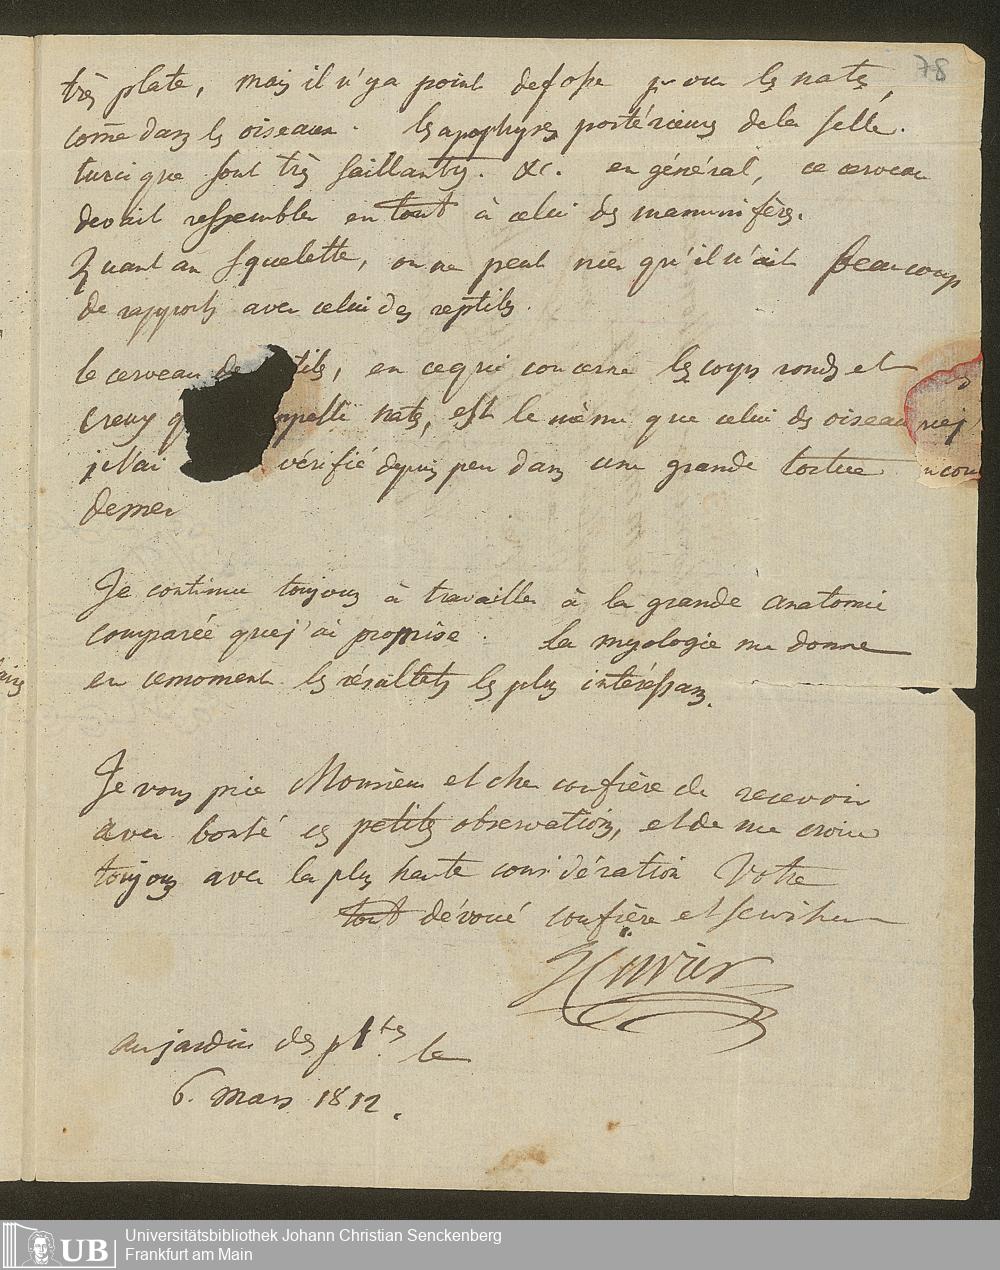 78
très plate, mais il n'y a point de fosse pour les nates,
come dans les oiseaux. les apophyses postérieures de la selle.
turcique sont très saillantes. &c. en général, ce cerveau
devait ressembler en tout à celui des mammifères.
Quant au squelette, on ne peut nier qu'il n'ait beaucoup
de rapports avec celui des reptiles.
le cerveau de tiles, en ce qui concerne les corps ronds et
creux q appelle nates, est le même que celui des oiseaux
je l'ai vérifié depuis peu dans une grande tortue
de mer
Je continue toujours à travailler à la grande anatomie
comparée que j'ai promise. la myologie me donne
en ce moment les résultats les plus intéressans.
Je vous prie Monsieur et cher confrère de recevoir
avec bonté ces petites observations, et de me croire
toujours avec la plus haute considération Votre
tout dévoué confrère et serviteur
G Cuvier
au jardin des ptes le
6. mars 1812.
UB
Universitätsbibliothek Johann Christian Senckenberg
Frankfurt am Main